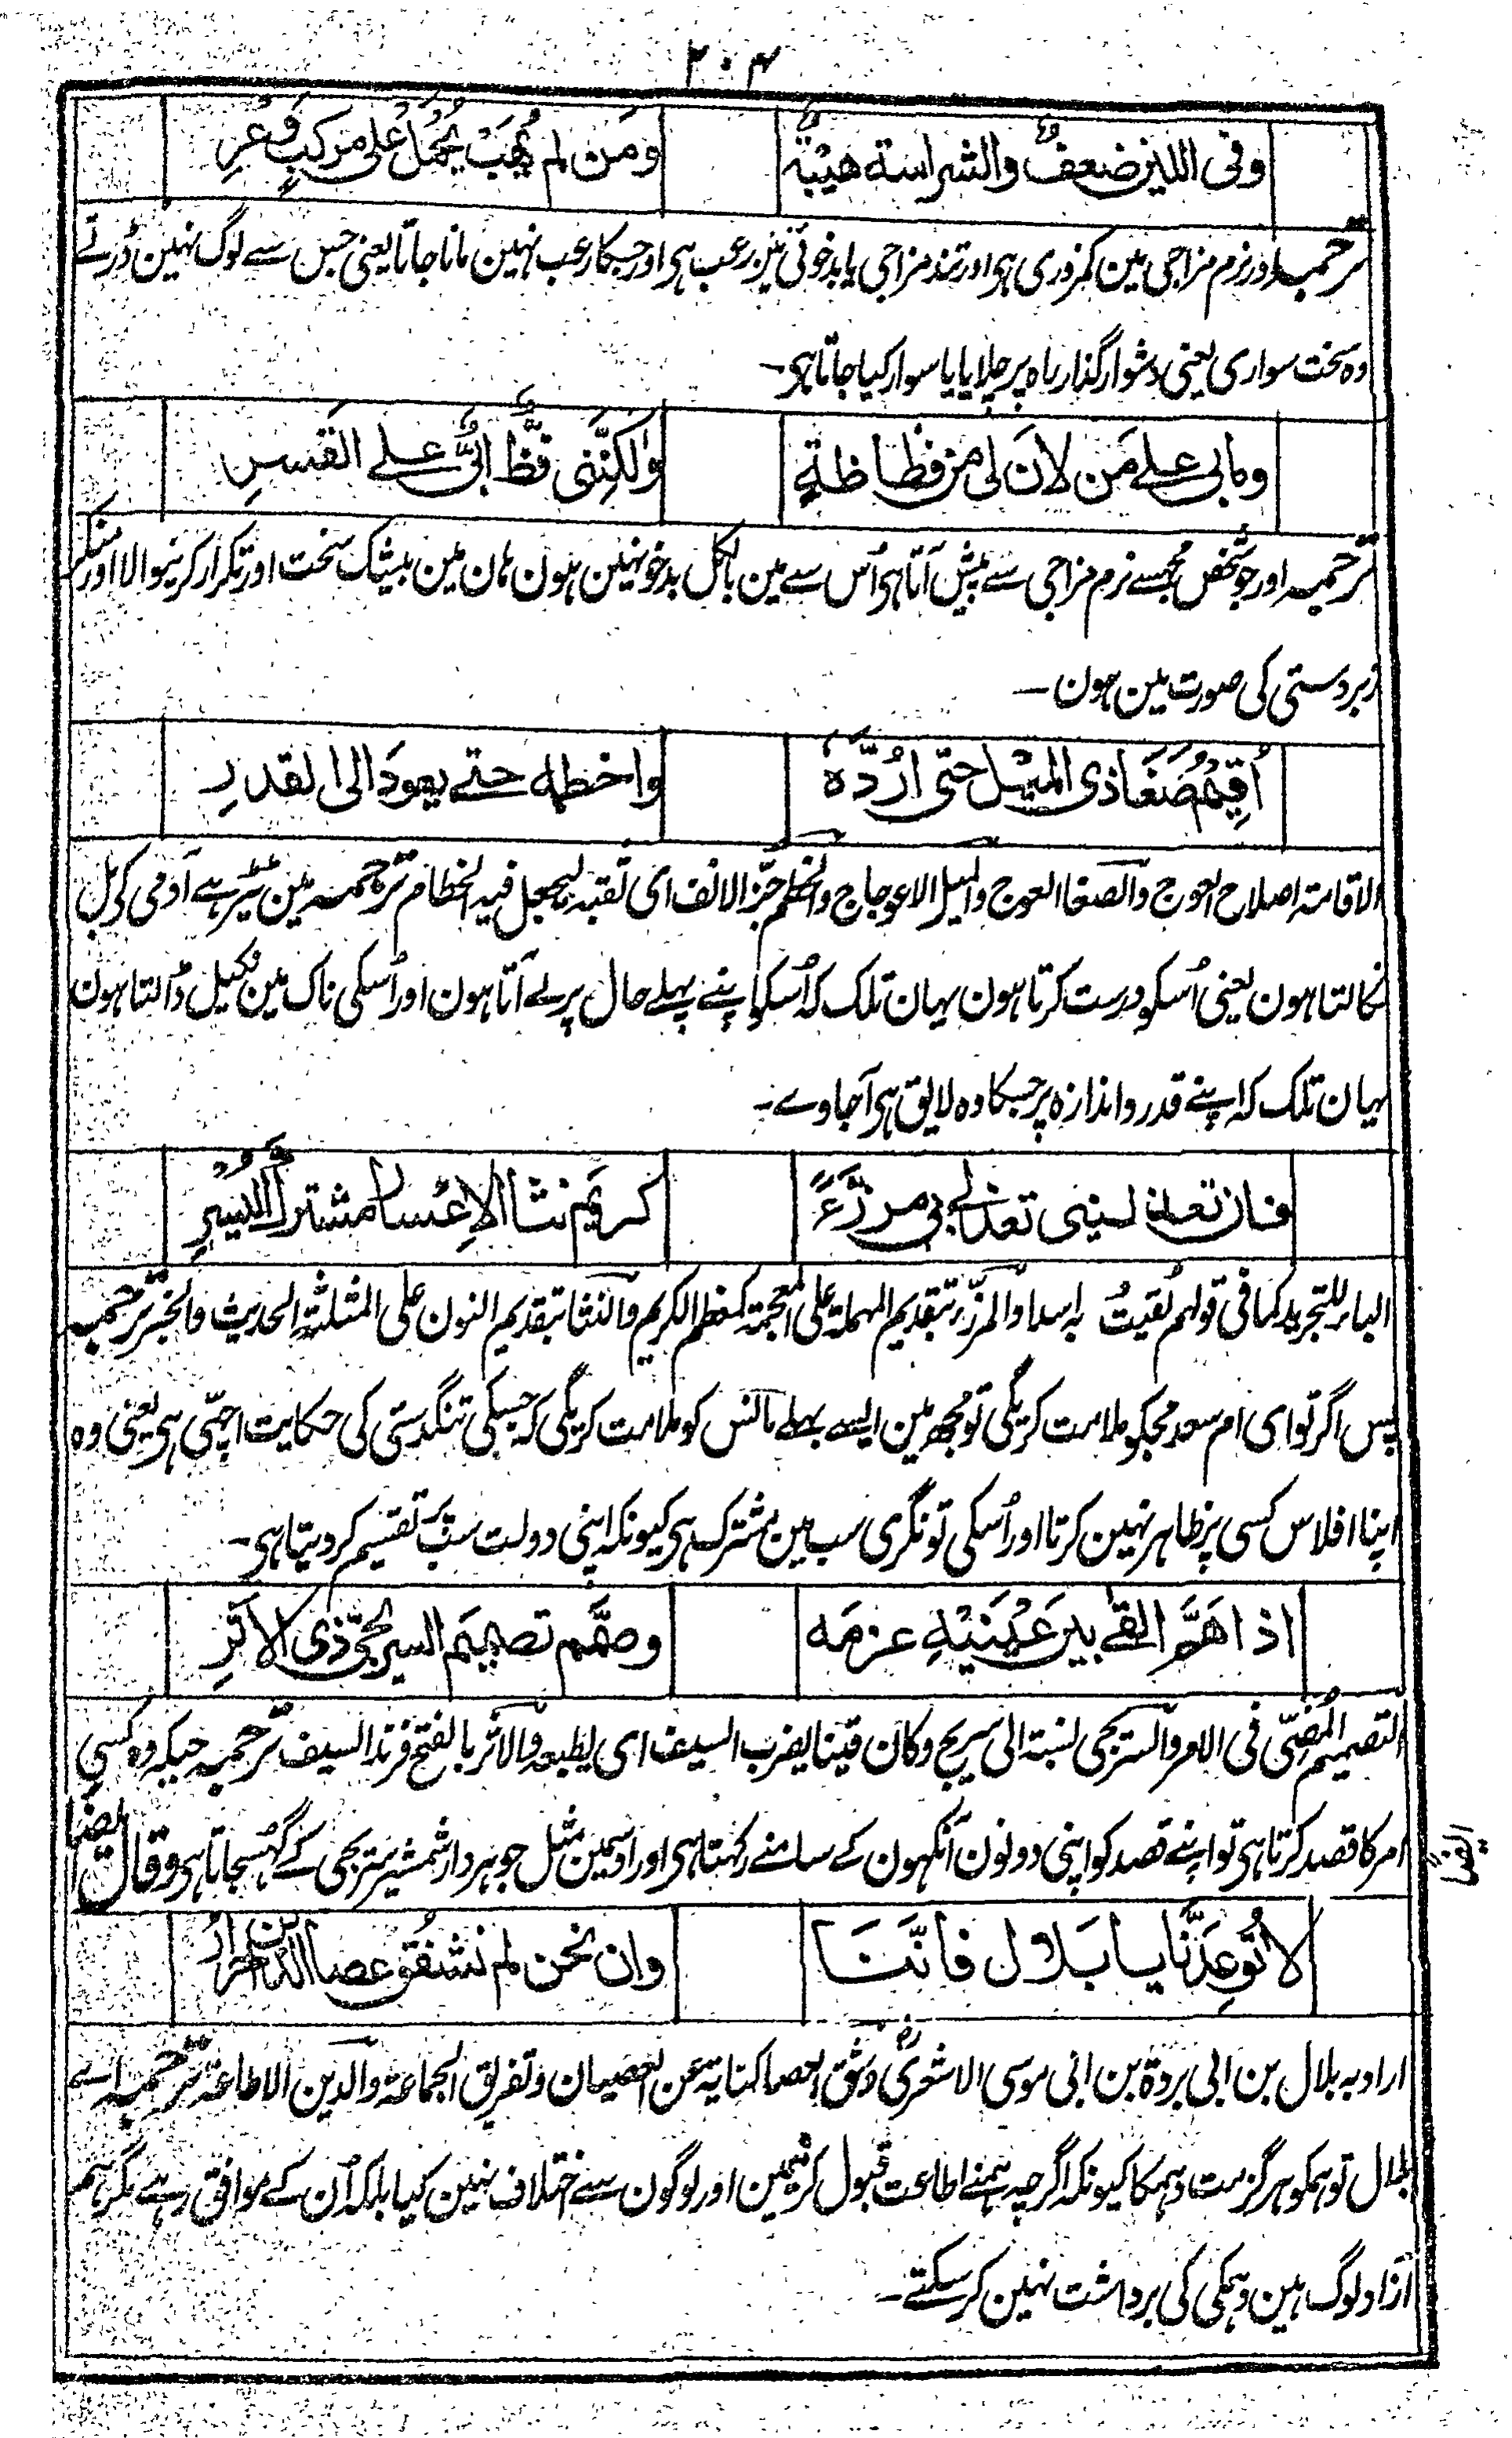 ۲۰۴
وفی اللین ضعفٌ والشراسة هیبةٌ ومَن لم یُهَبْ یُحمَلْ علی مرکبٍ وَعْرِ
ترجمہ اور نرم مزاجی مین کمزوری ہی اور تند مزاجی یا بدخوئی مین رعب ہی اور جسکا رعب نہین مانا جاتا یعنی جس سے لوگ نہین ڈرتے
وہ سخت سواری یعنی دشوار گذار راہ پر چلایا یا سوار کیا جاتا ہی۔
ومابی علے مَن لانَ لی من فظاظةٍ ولکِنَّنی فظٌّ ابیٌّ علے القَسرِ
ترجمہ اور جو شخص مجھسے نرم مزاجی سے پیش آتا ہی اُس سے مین بالکل بدخو نہین ہون ہان مین بیشک سخت اور تکرار کرنیوالا اور منکر
زبردستی کی صورت مین ہون۔
أقیم صَغَا ذی المیْل حتی اردَّہ واخطمہ حتے یعودَ الی القدرِ
الاقامتہ اصلاح العوج والصغا العوج والمیل الاعوجاج والخطم جزّ الانف ای ثقبہ لیجعل فیہ الخطام ترجمہ مین ٹیڑہے آدمی کی بل
نکالتا ہون یعنی اُسکو درست کرتا ہون یہان تلک کہ اُسکو اپنے پہلے حال پر لے آتا ہون اور اُسکی ناک مین نکیل ڈالتا ہون
یہان تلک کہ اپنے قدر و اندازہ پر جسکا وہ لایق ہی آجاوے۔
فان تعذلینی تعذلی بی مرزَّءً کریم نثا الاعسار مشترکَ الیُسرِ
الباء للتجرید کما فی قولہم لقیتُ بہ اسدا والمرزّء بتقدیم المہملة علی المعجمة کمعظم الکریم والنثا بتقدیم النون علی المثلثة الحدیث والخبر ترجمہ
پس اگر تو ای ام سعد مجکو ملامت کریگی تو مجھ مین ایسے بھلے مانس کو ملامت کریگی کہ جسکی تنگدستی کی حکایت اچھی ہی یعنی وہ
اپنا افلاس کسی پر ظاہر نہین کرتا اور اُسکی تونگری سب مین مشترک ہی کیونکہ اپنی دولت سب پر تقسیم کر دیتا ہی۔
اذا هَمَّ القے بین عَیْنَیْهِ عزمَه وصمَّم تصمیم السریجیّ ذی الاَثرِ
التصمیم المُضِیّ فی الامر والسریجی نسبتہ الی سریج وکان قینا یضرب السیف ای یطبعہ والاثر بالفتح فرند السیف ترجمہ جبکہ وہ کسی
امر کا قصد کرتا ہی تو اپنے قصد کو اپنی دونون آنکہون کے سامنے رکہتا ہی اور اوسمین مثل جوہردار شمشیر سریجی کے گہس جاتا ہی وقال ایضا
ایضًا
لا تُوعِدَنّا یا بَلال فانّنَا وان نحن لم نشقُق عصا الدین احرارُ
اراد بہ بلال بن ابی بردة بن ابی موسی الاشعریؓ وشق العصا کنایة عن العصیان وتفریق الجماعة والدین الاطاعة ترجمہ اے
بلال تو ہمکو ہرگز مت دہمکا کیونکہ اگرچہ ہمنے اطاعت قبول کرنیمین اور لوگون سے اختلاف نہین کیا بلکہ اُن کے موافق رہے مگر ہم
آزاد لوگ ہین دہمکی کی برداشت نہین کرسکتے۔